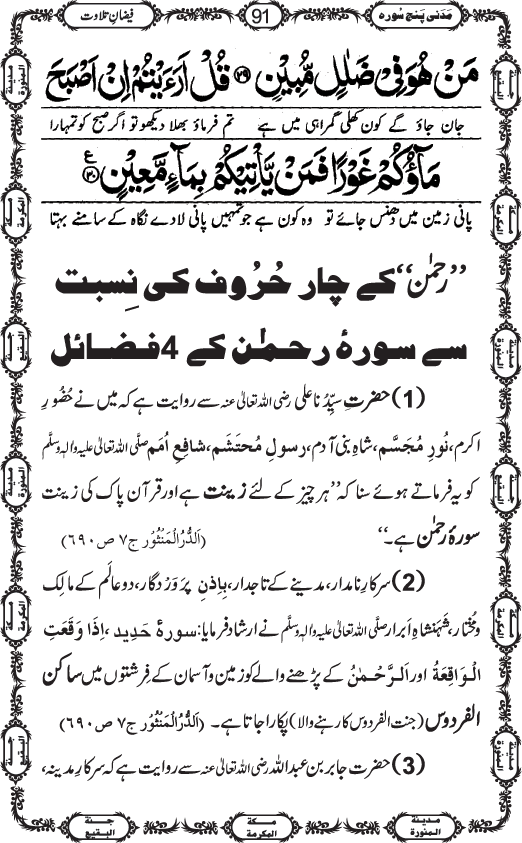 مَدَنی پنج سورہ
91
فیضانِ تلاوت
مَنْ هُوَ فِیْ ضَلٰلٍ مُّبِیْنٍ ﴿۲۹﴾ قُلْ اَرَءَیْتُمْ اِنْ اَصْبَحَ
جان جاؤ گے کون کھلی گمراہی میں ہے تم فرماؤ بھلا دیکھو تو اگر صبح کو تمہارا
مَآؤُكُمْ غَوْرًا فَمَنْ یَّاْتِیْكُمْ بِمَآءٍ مَّعِیْنٍ ﴿۳۰﴾ ع
پانی زمین میں دھنس جائے تو وہ کون ہے جو تمہیں پانی لادے نگاہ کے سامنے بہتا
”رَحمٰن“ کے چار حُرُوف کی نِسبت
سے سورۂ رحمٰن کے 4 فضائل
(1) حضرتِ سیِّدُنا علی رضی اللہ تعالیٰ عنہ سے روایت ہے کہ میں نے حُضُورِ
اکرم، نُورِ مُجَسَّم، شاہِ بنی آدم، رسولِ مُحتَشَم، شافِعِ اُمَم صلَّی اللہ تعالیٰ علیہ واٰلہٖ وسلَّم
کو یہ فرماتے ہوئے سنا کہ ”ہر چیز کے لئے زینت ہے اور قرآن پاک کی زینت
سورۂ رحمٰن ہے۔“ (اَلدُّرُالْمَنْثُوْر ج۷ ص۶۹۰)
(2) سرکارِ نامدار، مدینے کے تاجدار، بِاِذنِ پَروَرْدگار، دو عالَم کے مالِک
ومُختار، شَہَنشاہِ اَبرار صلَّی اللہ تعالیٰ علیہ واٰلہٖ وسلَّم نے ارشاد فرمایا: سورۂ حَدِید، اِذَا وَقَعَتِ
الْوَاقِعَۃُ اور اَلرَّحْمٰنُ کے پڑھنے والے کو زمین وآسمان کے فِرِشتوں میں ساکنُ
الفِردَوْس (جنت الفردوس کا رہنے والا) پکارا جاتا ہے۔ (اَلدُّرُالْمَنْثُوْر ج۷ ص۶۹۰)
(3) حضرت جابر بن عبداللہ رضی اللہ تعالیٰ عنہ سے روایت ہے کہ سرکارِ مدینہ،
جنۃ البقیع
مکۃ المکرمۃ
مدینۃ المنورۃ